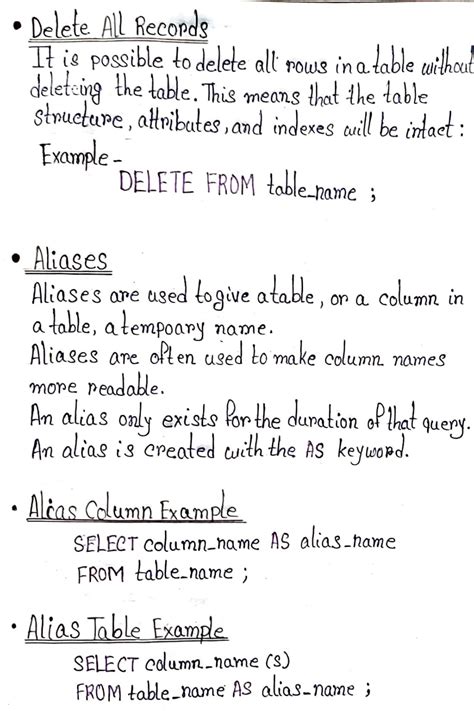 • Delete All Records
It is possible to delete all rows in a table without
deleteing the table. This means that the table
structure, attributes, and indexes will be intact :
Example -
DELETE FROM table_name ;
• Aliases
Aliases are used to give a table, or a column in
a table, a tempoary name.
Aliases are often used to make column names
more readable.
An alias only exists for the duration of that query.
An alias is created with the AS keyword.
• Alias Column Example
SELECT column_name AS alias_name
FROM table_name ;
• Alias Table Example
SELECT column_name (s)
FROM table_name AS alias_name ;